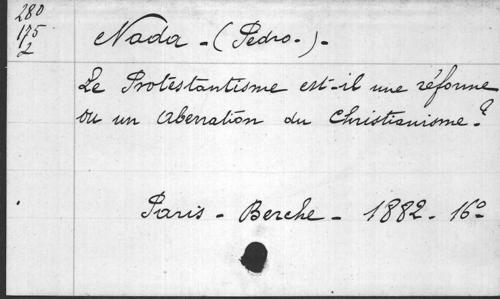 280
175
2
Nada - (Pedro-) -
Le Protestantisme est-il une réforme
ou un Aberration du Christianisme-?
Paris - Berche - 1882 - 16º